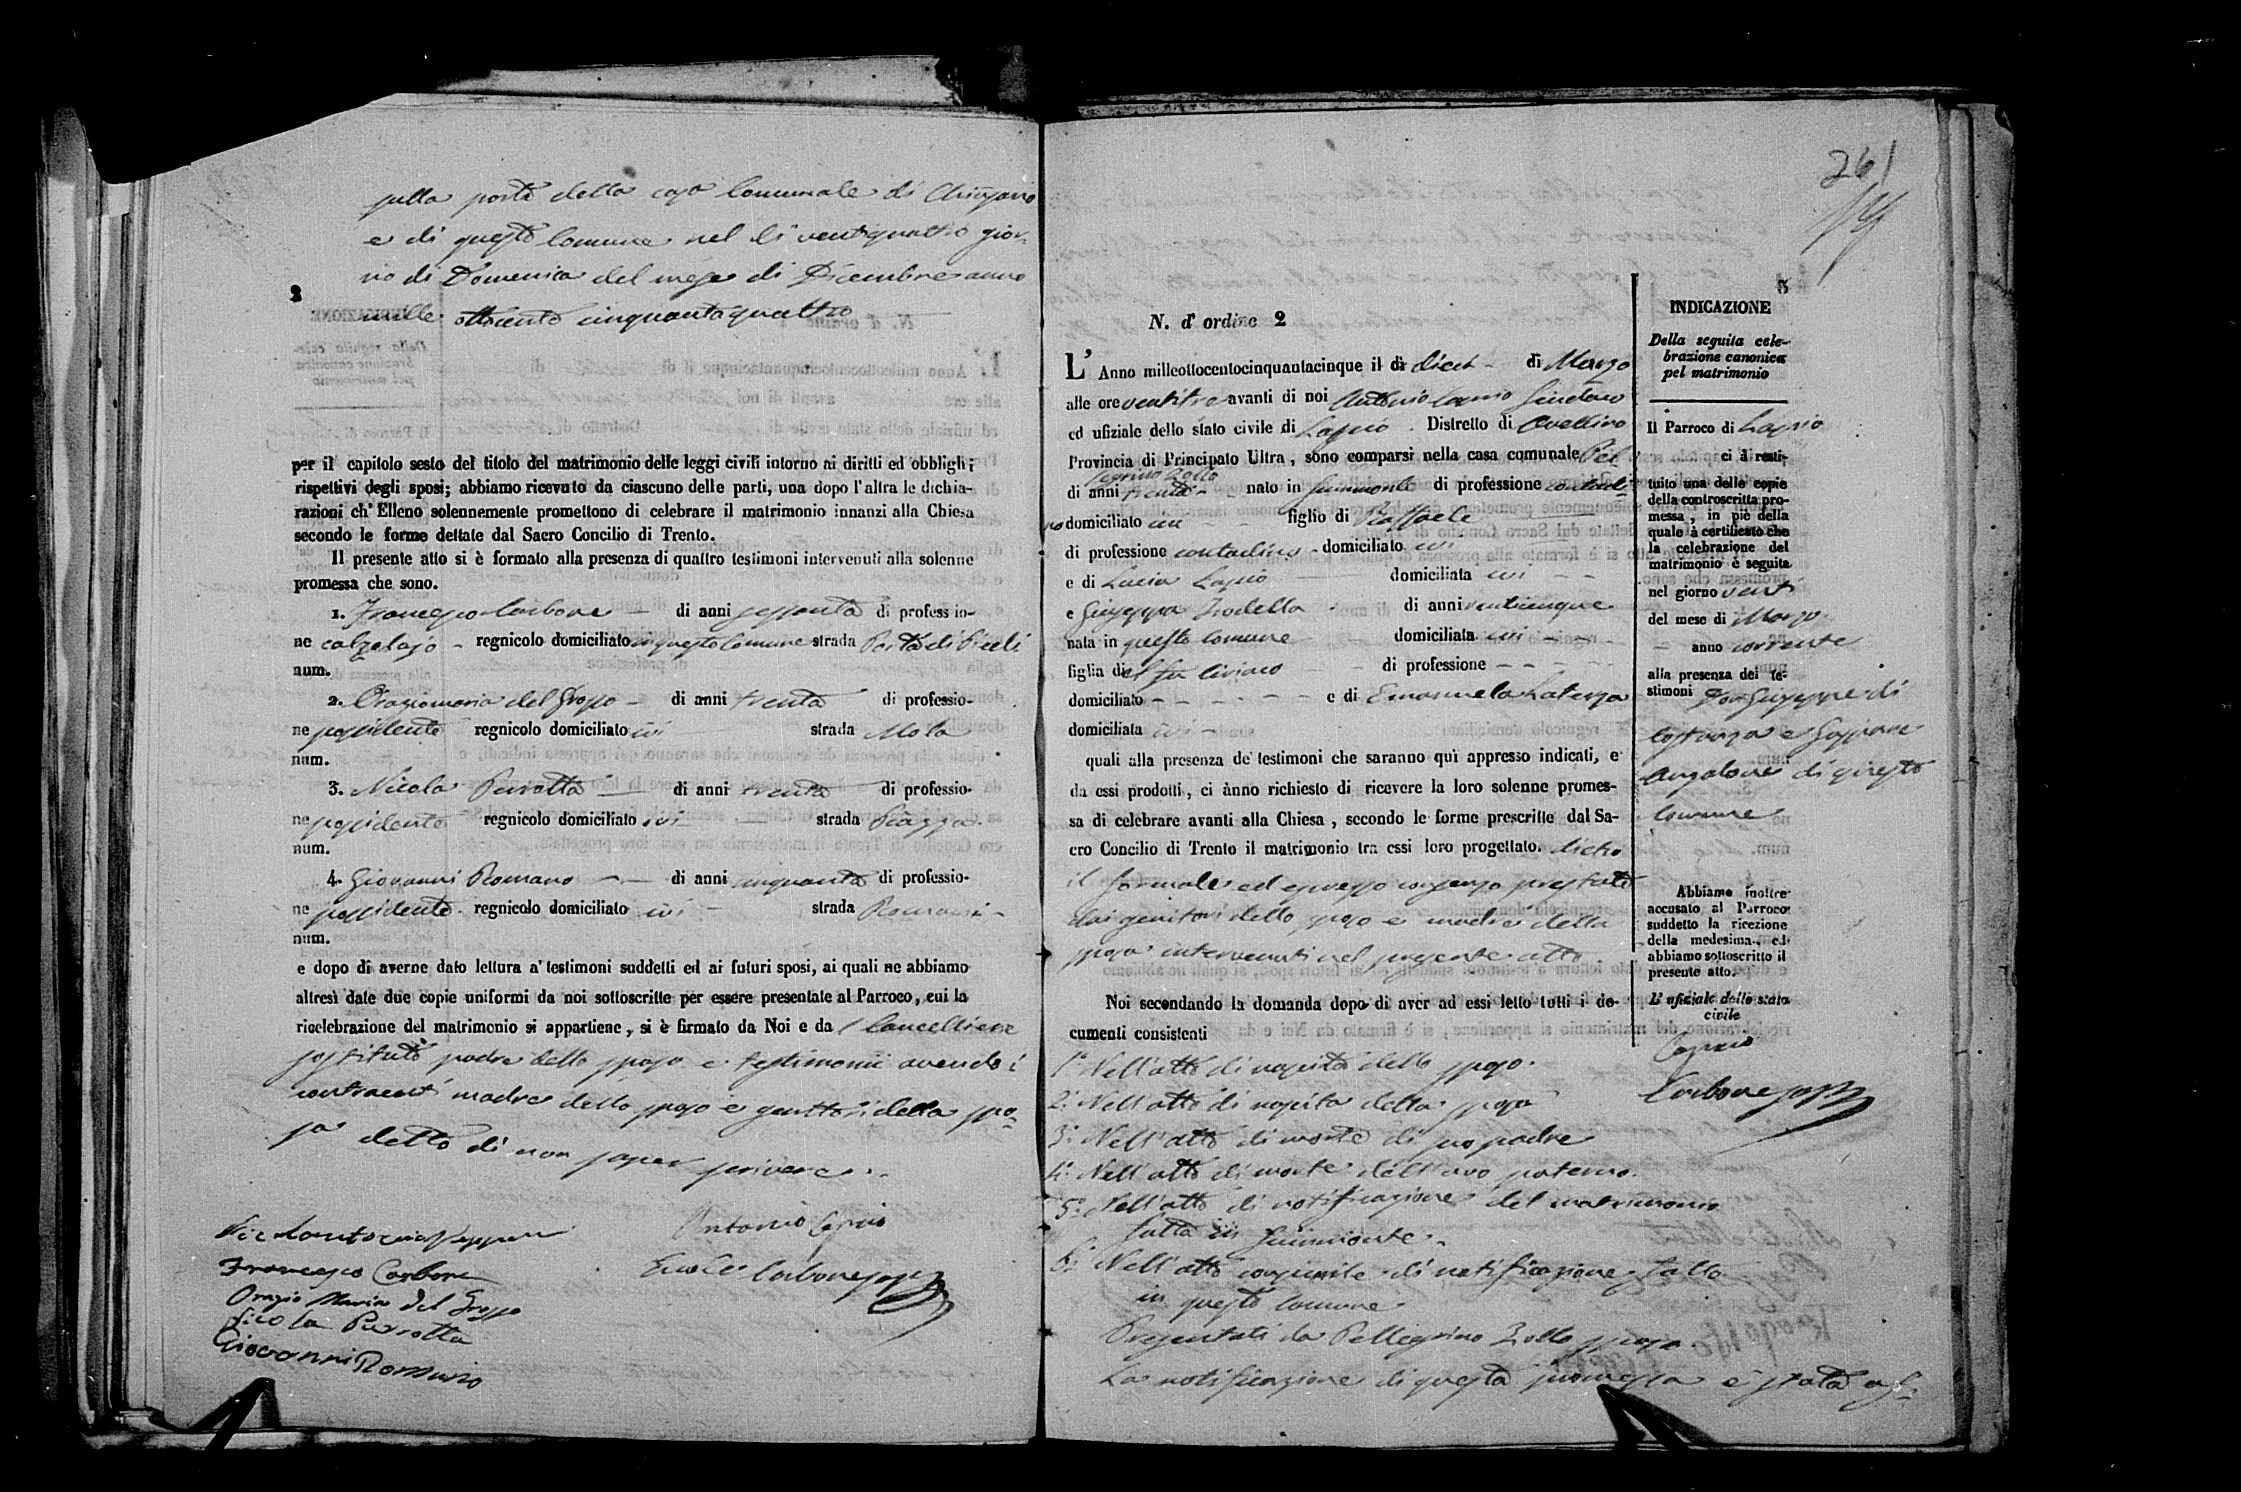 sulla porta della casa Comunale di Chiusano
e di questo Comune nel dì ventiquattro gior-
no di Domenica del mese di Dicembre anno
2
mille ottocento cinquantaquattro
per il capitolo sesto del titolo del matrimonio delle leggi civili intorno ai diritti ed obblighi
rispettivi degli sposi; abbiamo ricevuto da ciascuno delle parti, una dopo l'altra le dichia-
razioni ch' Elleno solennemente promettono di celebrare il matrimonio innanzi alla Chiesa
secondo le forme dettate dal Sacro Concilio di Trento.
Il presente atto si è formato alla presenza di quattro testimoni intervenuti alla solenne
promessa che sono.
1. Francesco Carbone di anni sessanta di professio-
ne calzolajo - regnicolo domiciliato in questo Comune strada Porta di
num.
2. Oraziomaria del Grosso di anni trenta di professio-
ne possidente regnicolo domiciliato ivi strada Mola
num.
3. Nicola Perrotta di anni trenta di professio-
ne possidente regnicolo domiciliato ivi strada Piazza
num.
4. Giovanni Romano di anni cinquanta di professio-
ne possidente regnicolo domiciliato ivi strada
num.
e dopo di averne dato lettura a' testimoni suddetti ed ai futuri sposi, ai quali ne abbiamo
altresì date due copie uniformi da noi sottoscritte per essere presentate al Parroco, cui la
ricelebrazione del matrimonio si appartiene, si è firmato da Noi e da l Cancelliere
sostituto padre dello sposo e testimonii avendo i
contraenti madre dello sposo e genitori della spo-
sa detto di non saper scrivere
Antonio Lapio
Francesco Carbone
Carbone
Orazio Maria Del Grosso
Nicola Perrotta
Giovanni Romano
261
3
N. d' ordine 2
L' Anno milleottocentocinquantacinque il dì dieci di Marzo
alle ore ventitre avanti di noi Antonio Lapio Sindaco
ed ufiziale dello stato civile di Lapio. Distretto di Avellino
Provincia di Principato Ultra, sono comparsi nella casa comunale Pel-
legrino Zollo
di anni trenta nato in Summonte di professione contadi-
no domiciliato ivi figlio di Raffaele
di professione contadino domiciliato ivi
e di Lucia Lapio domiciliata ivi
e Giuseppa Trodella di anni venticinque
nata in questo Comune domiciliata ivi
figlia del fu Ciriaco di professione
domiciliato e di Emanuela Laterza
domiciliata ivi
quali alla presenza de' testimoni che saranno quì appresso indicati, e
da essi prodotti, ci ànno richiesto di ricevere la loro solenne promes-
sa di celebrare avanti alla Chiesa, secondo le forme prescritte dal Sa-
cro Concilio di Trento il matrimonio tra essi loro progettato. dietro
il formale ed espresso consenso prestato
dai genitori dello sposo e madre della
sposa intervenuti nel presente atto.
Noi secondando la domanda dopo di aver ad essi letto tutti i do-
cumenti consistenti
1° Nell'atto di nascita dello sposo.
2° Nell'atto di nascita della sposa
3° Nell'atto di morte di suo padre
4° Nell'atto di morte dell'avo paterno.
5° Nell'atto di notificazione del matrimonio
fatta in Summonte.
6° Nell'atto consimile di notificazione fatta
in questo Comune
Presentati da Pellegrino Zollo sposo.
La notificazione di questa promessa è stata af-
INDICAZIONE
Della seguita cele-
brazione canonica
pel matrimonio
Il Parroco di Lapio
ci à resti-
tuito una delle copie
della controscritta pro-
messa, in piè della
quale à certificato che
la celebrazione del
matrimonio è seguita
nel giorno venti
del mese di Marzo
anno corrente
alla presenza dei te-
stimoni Don Giuseppe di
Costanzo e
Angelone di questo
Comune
Abbiamo inoltre
accusato al Parroco
suddetto la ricezione
della medesima, ed
abbiamo sottoscritto il
presente atto.
L' ufiziale dello stato
civile
Lapio
Carbone